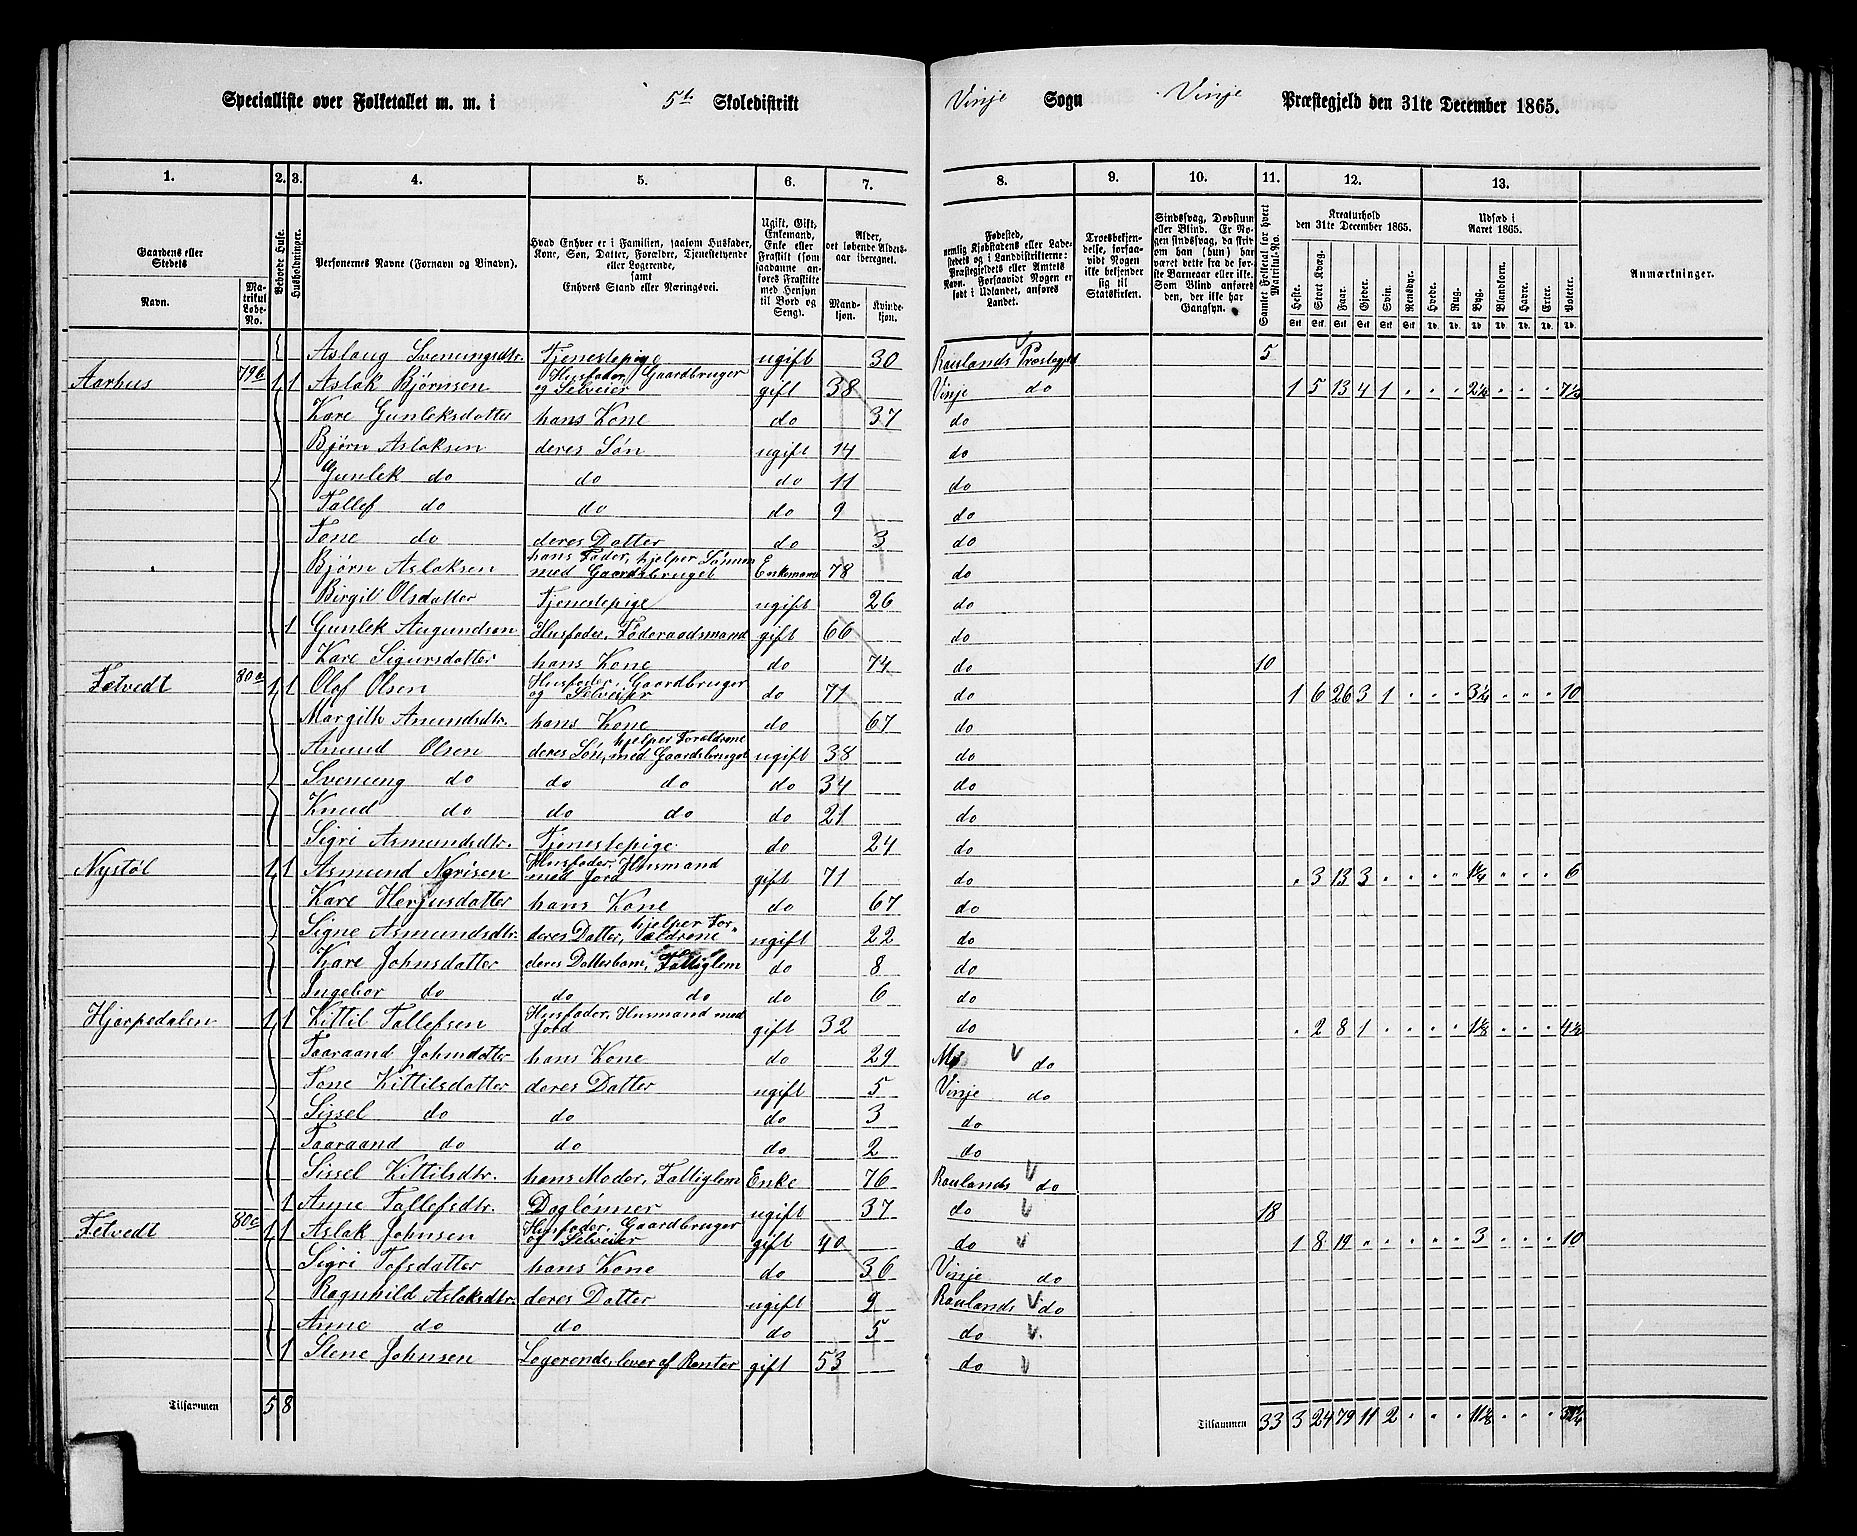 Specialliste over Folketallet m. m. i 5te Skoledistrikt Vinje Sogn Vinje Præstegjeld den 31te December 1865.
1. 2. 3. 4. 5. 6. 7. 8. 9. 10. 11. 12. 13.
Gaardens eller Stedets Navn. Matrikul Løbe-No. Beboede Huse. Husholdninger. Personernes Navne (Fornavn og Tilnavn). Hvad Enhver er i Familien, saasom Husfader, Kone, Søn, Datter, Forældre, Tjenestetyende eller Logerende, samt Enhvers Stand eller Næringsvei. Ugift, Gift, Enkemand, Enke eller Fraskilt (som saadanne anføres Fraskilte med Hensyn til Bord og Seng). Alder, det løbende Alders-aar iberegnet. Mandkjøn. Kvindekjøn. Fødested, nemlig Kjøbstadens eller Ladestedets og i Landdistrikterne: Præstegjeldets eller Amtets Navn. Forsaavidt Nogen er født i Udlandet, anføres Landet. Troesbekjendelse, forsaavidt Nogen ikke bekjender sig til Statskirken. Sindssvag, Døvstum eller Blind. Er Nogen sindssvag, da skrives om han (hun) har været dette fra de første Barneaar eller ikke. Som Blind anføres den, der ikke har Gangsyn. Samlet Folketal for hvert Matrikul-No. Kreaturhold den 31te December 1865. Heste. Stort Kvæg. Faar. Gjeder. Svin. Rensdyr. Udsæd i Aaret 1865. Hvede. Rug. Byg. Blandkorn. Havre. Erter. Poteter. Anmærkninger.
Aslaug Sveinungsdtr. Tjenestepige ugift 30 Raulands Præstegjeld 5
Aarhus 79b 1 1 Aslak Bjørnsen Husfader, Gaardbruger og Selveier gift 38 Vinje do 1 5 13 4 1 2¼ 7½
Kare Gunleksdatter hans Kone do 37 do
Bjørn Aslaksen deres Søn ugift 14 do
Gunlek do do do 11 do
Tallef do do do 9 do
Tone do deres Datter do 3 do
Bjørn Aslaksen hans Fader, hjelper Sønnen med Gaardsbruget Enkemand 78 do
Birgit Olsdatter Tjenestepige ugift 26 do
1 Gunlek Augundsøn Husfader, Føderaadsmand gift 66 do
Kare Sigursdatter hans Kone do 74 do 10
Fetvedt 80a 1 1 Olaf Olsen Husfader, Gaardbruger og Selveier do 71 do 1 6 26 3 1 3¼ 10
Margith Anundsdtr. hans Kone do 67 do
Anund Olsen deres Søn, hjelper Forældrene med Gaardsbruget ugift 38 do
Sveinung do do do do 34 do
Knud do do do do 21 do
Sigri Asmundsdtr. Tjenestepige do 24 do
Nystøl 1 1 Asmund Nyrisen Husfader, Husmand med Jord gift 71 do 3 13 3 1¼ 6
Kare Herjusdatter hans Kone do 67 do
Signe Asmundsdtr. deres Datter, hjelper Forældrene ugift 22 do
Kare Johnsdatter deres Datterbarn, Fattiglem do 8 do
Ingebor do do do do 6 do
Hjerpedalen 1 1 Kittil Tallefsen Husfader, Husmand med Jord gift 32 do 2 8 1 1⅛ 4½
Taaraand Johnsdatter hans Kone do 29 Mo do
Tone Kittilsdatter deres Datter ugift 5 Vinje do
Sissel do do do 3 do
Taaraand do do do 2 do
Sissel Kittilsdtr. hans Moder, Fattiglem Enke 76 Raulands do
1 Anne Tallefsdtr. Daglønner ugift 37 do 18
Fetvedt 80c 1 1 Aslak Johnsen Husfader, Gaardbruger og Selveier gift 40 do 1 8 19 3 10
Sigri Tofsdatter hans Kone do 36 Vinje do
Ragnhild Aslaksdtr. deres Datter ugift 9 Raulands do
Anne do do do 5 do
1 Stene Johnsen Logerende, lever af Renter gift 53 do
Tilsammen 5 8 Tilsammen 33 3 24 79 11 2